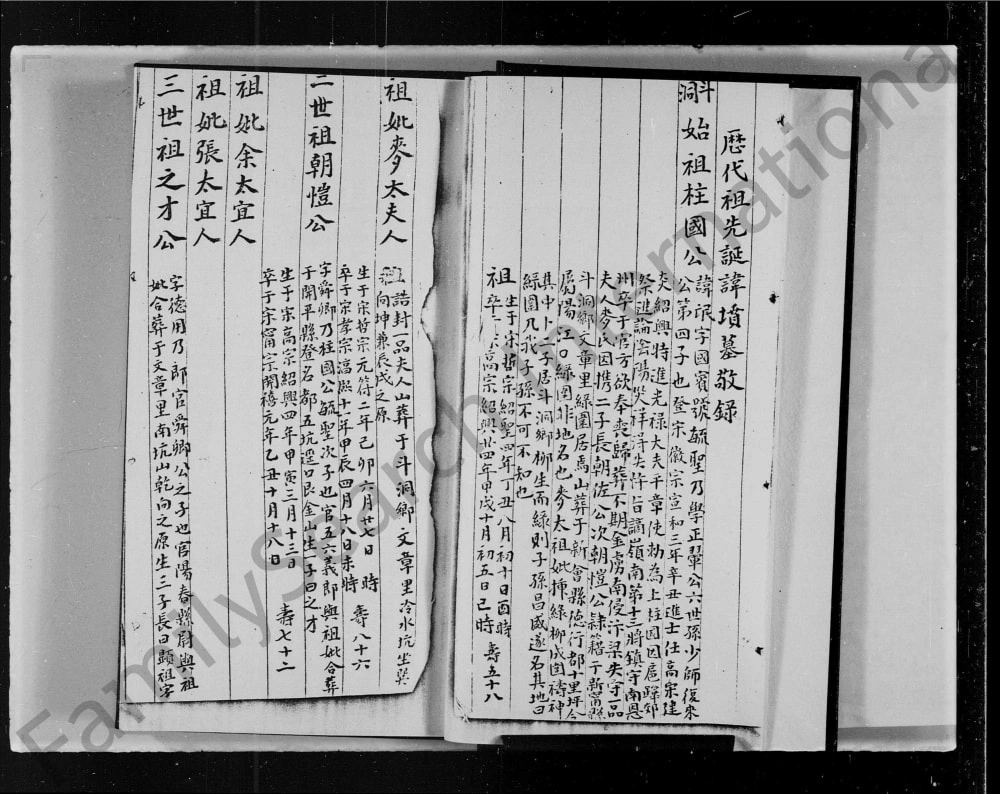 歷代祖先誕諱墳墓敬錄
斗洞始祖柱國公
諱珉字國賓號毓聖乃學正翬公六世孫少師復來
公第四子也登宋徽宗宣和三年辛丑進士任高宗建
炎紹興特進光祿大夫平章使勅為上柱國因扈蹕郊
祭進論陰陽災祥得失忤旨謫嶺南第十三將鎮守南恩
州卒于官方欲奉喪歸葬不期金虜南侵汴梁失守一品
夫人麥氏因携二子長朝佐公次朝愷公隸籍于新寧縣
斗洞鄉文章里綠圍居焉山葬于新會縣德行都十里坪今
屬陽江口綠圍非地名也麥太祖妣揷綠柳成圍禱神
其中卜二子居斗洞鄉柳生而綠則子孫昌盛遂名其地曰
綠圍凡我子孫不可不知也
祖生于宋哲宗紹聖四年丁丑八月初十日酉時
卒于宋高宗紹興廿四年甲戌十月初五日巳時 壽五十八
祖妣麥太夫人
誥封一品夫人山葬于斗洞鄉文章里冷水坑坐巽
向坤兼辰戌之原
生于宋哲宗元符二年己卯六月廿七日 時
卒于宋孝宗淳熙十一年甲辰四月十八日未時 壽八十六
二世祖朝愷公
字舜卿乃柱國公毓聖次子也官五六義郎與祖妣合葬
于開平縣登名都五坑逕口艮金山生一子曰之才
生于宋高宗紹興四年甲寅三月十三日
卒于宋甯宗開禧元年乙丑十月十八日 壽七十二
祖妣余太宜人
祖妣張太宜人
三世祖之才公
字德用乃郎官舜卿公之子也官陽春縣尉與祖
妣合葬于文章里南坑山乾向之原生三子長曰顯祖字
FamilySearch International